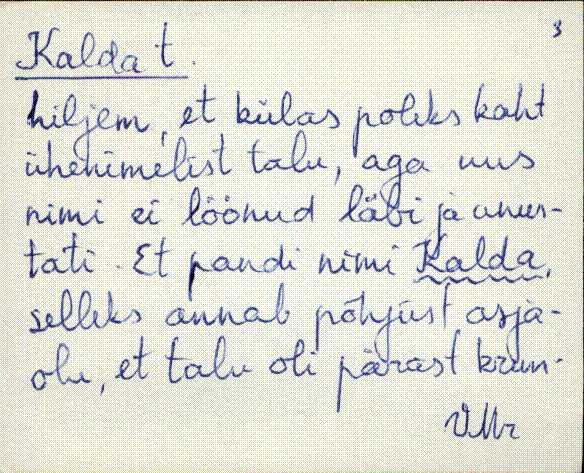 3
Kalda t.
hiljem, et külas poleks kaht
ühenimelist talu, aga uus
nimi ei löönud läbi ja unus-
tati. Et pandi nimi Kalda,
selleks annab põhjust asja-
olu, et talu oli pärast krun-
VMr